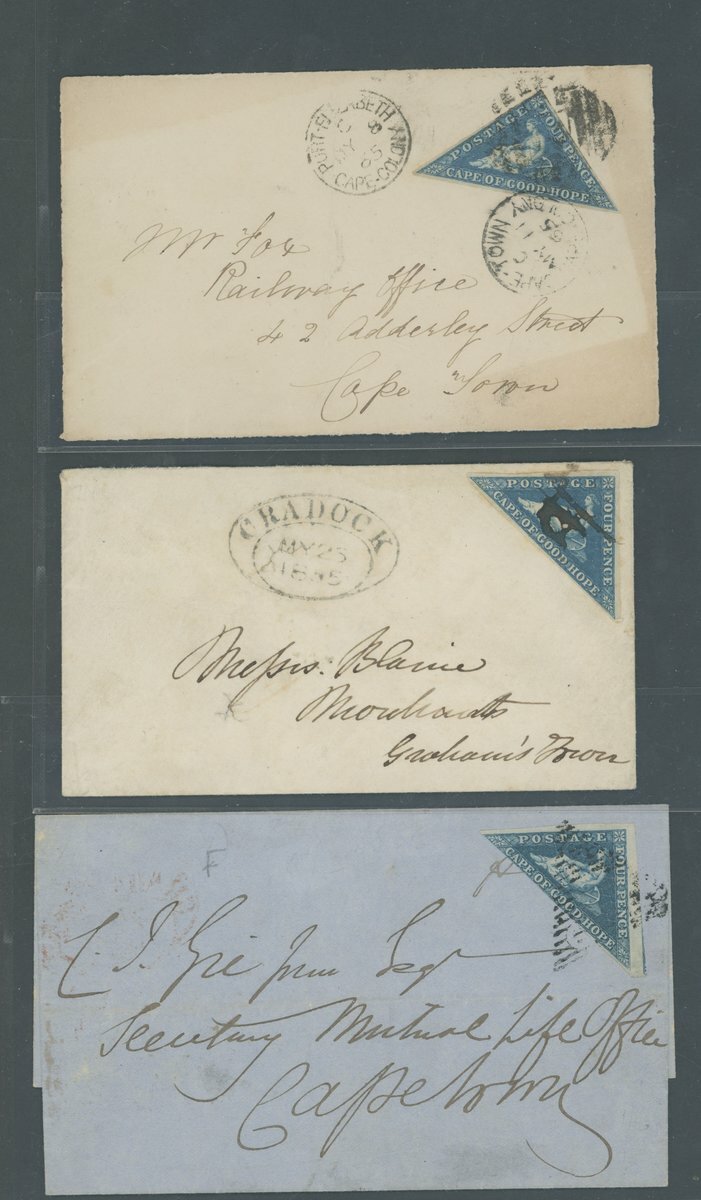 PORT-ELIZABETH
8
MY
65
CAPE-COL
POSTAGE
FOUR PENCE
CAPE OF GOOD HOPE
TOWN
C
MY 11
65
COLONY
Mr Fox
Railway Office
42 Adderley Street
Cape Town
CRADOCK
MY 25
POSTAGE
FOUR PENCE
CAPE OF GOOD HOPE
Messrs. Blaine
Merchants
Graham's Town
POSTAGE
FOUR PENCE
CAPE OF GOOD HOPE
F
C. J. Gie Junr Esqr
Secretary Mutual Life Office
Capetown